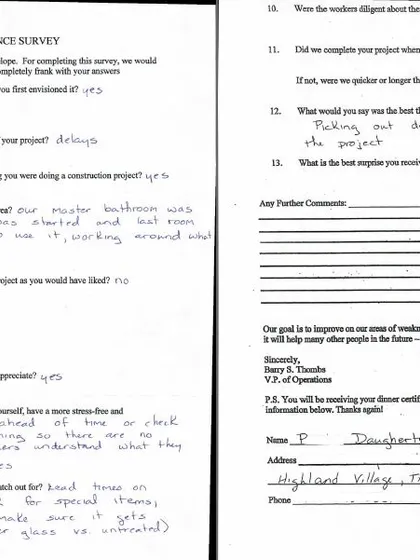 NCE SURVEY
lope. For completing this survey, we would
ompletely frank with your answers
ou first envisioned it? yes
your project? delays
g you were doing a construction project? yes
ea? our master bathroom was
as started and last room
o use it, working around what
roject as you would have liked? no
ppreciate? yes
ourself, have a more stress-free and
ahead of time or check
ning so there are no
ers understand what they
es
atch out for? Lead times on
for special items,
make sure it gets
r glass vs. untreated)
10. Were the workers diligent about the
11. Did we complete your project when
If not, were we quicker or longer th
12. What would you say was the best th
Picking out d
the project
13. What is the best surprise you recei
Any Further Comments:
Our goal is to improve on our areas of weakn
it will help many other people in the future –
Sincerely,
Barry S. Thombs
V.P. of Operations
P.S. You will be receiving your dinner certif
information below. Thanks again!
Name P Daughert
Address
Highland Village, T
Phone